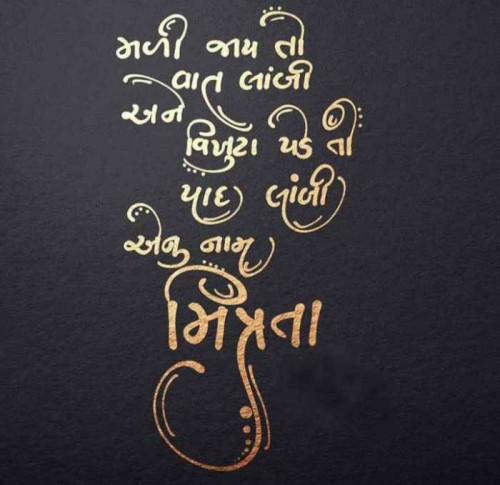 મળી જાય તો
વાત લાંબી
અને
વિખુટા પડે તો
યાદ લાંબી
એનુ નામ
મિત્રતા